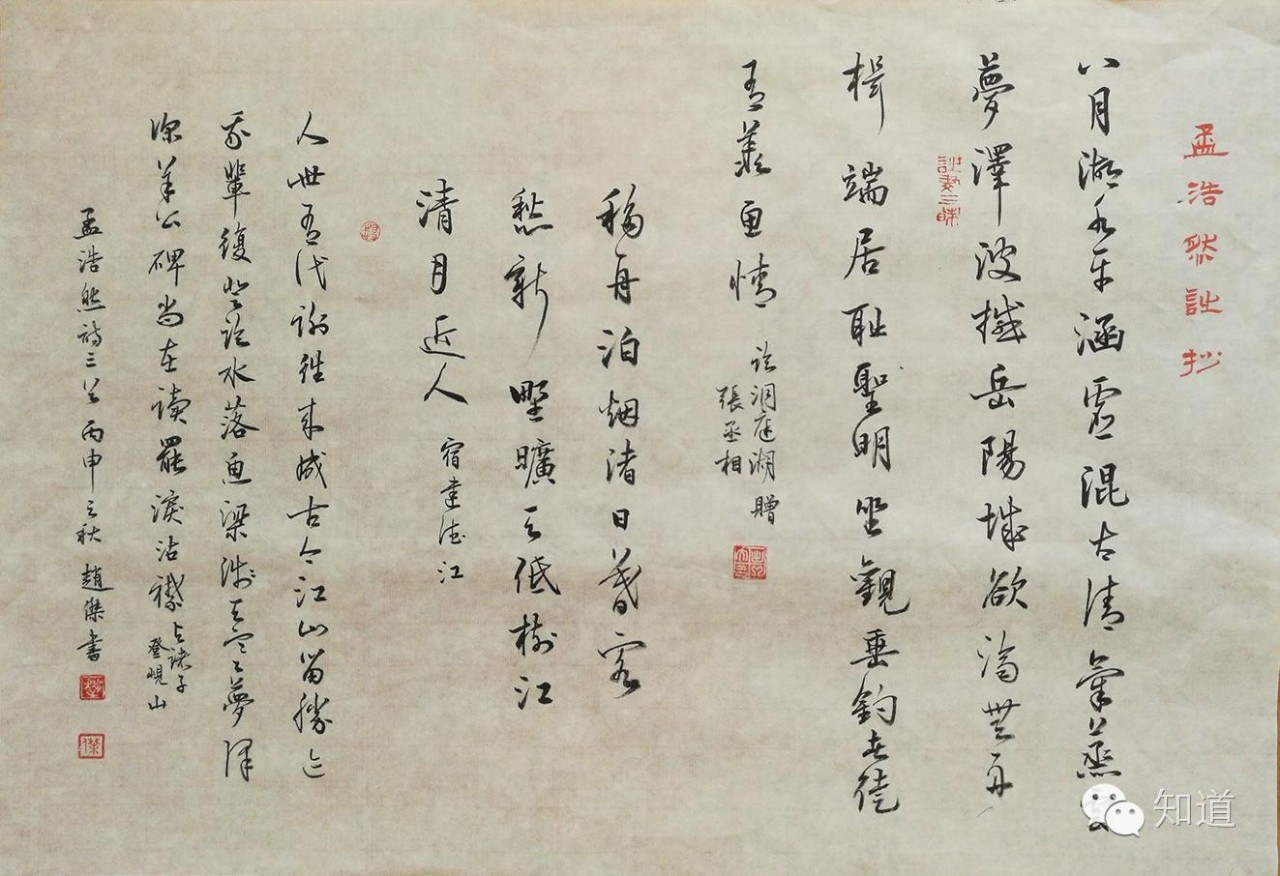 孟浩然詩抄
八月湖水平涵虛混太清氣蒸云
夢澤波撼岳陽城欲濟無舟
楫端居耻聖明坐觀垂釣者徒
有羨魚情
臨洞庭湖贈
張丞相
移舟泊烟渚日暮客
愁新野曠天低樹江
清月近人
宿建德江
人世有代謝往來成古今江山留勝迹
我輩復登臨水落魚梁淺天寒夢澤
深羊公碑尚在讀罷淚沾襟
與諸子
登峴山
孟浩然詩三首丙申之秋趙傑書
趙
傑
知道